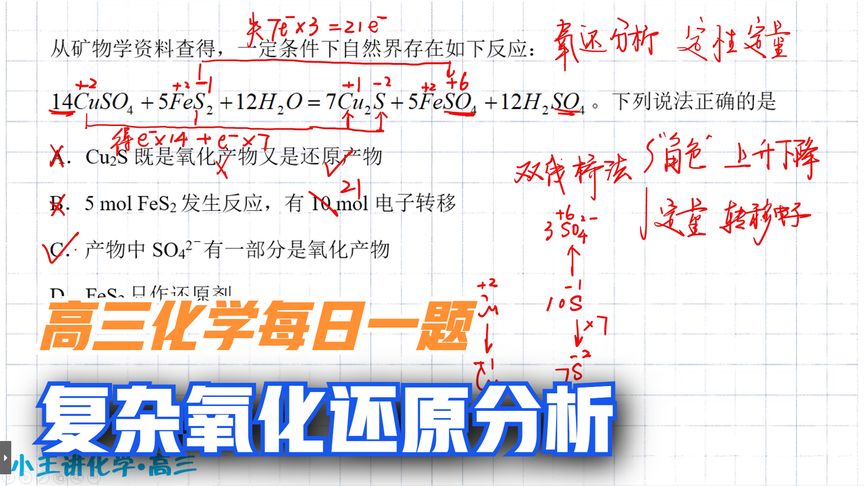 失7e⁻×3=21e⁻
从矿物学资料查得，一定条件下自然界存在如下反应：
氧还分析 定性定量
+2 +2 -1 +1 -2 +2 +6
14CuSO₄+5FeS₂+12H₂O=7Cu₂S+5FeSO₄+12H₂SO₄。下列说法正确的是
得e⁻×14+e⁻×7
A．Cu₂S 既是氧化产物又是还原产物
双线桥法 "角色" 上升下降
21
B．5 mol FeS₂发生反应，有 10 mol 电子转移
定量 转移电子
+6
3SO₄²⁻
C．产物中 SO₄²⁻有一部分是氧化产物
D．FeS₂只作还原剂
+2
-1
10S
×7
+1
-2
7S
高三化学每日一题
复杂氧化还原分析
小王讲化学·高三